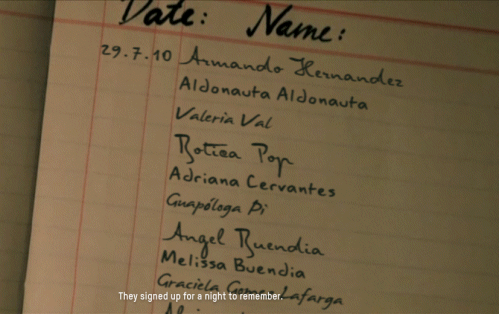 Date: Name:
29.7.10 Armando Hernandez
Aldonauta Aldonauta
Valeria Val
Botica Pop
Adriana Cervantes
Guapóloga Di
Angel Buendia
Melissa Buendia
Graciela Gomez Lafarga
They signed up for a night to remember.